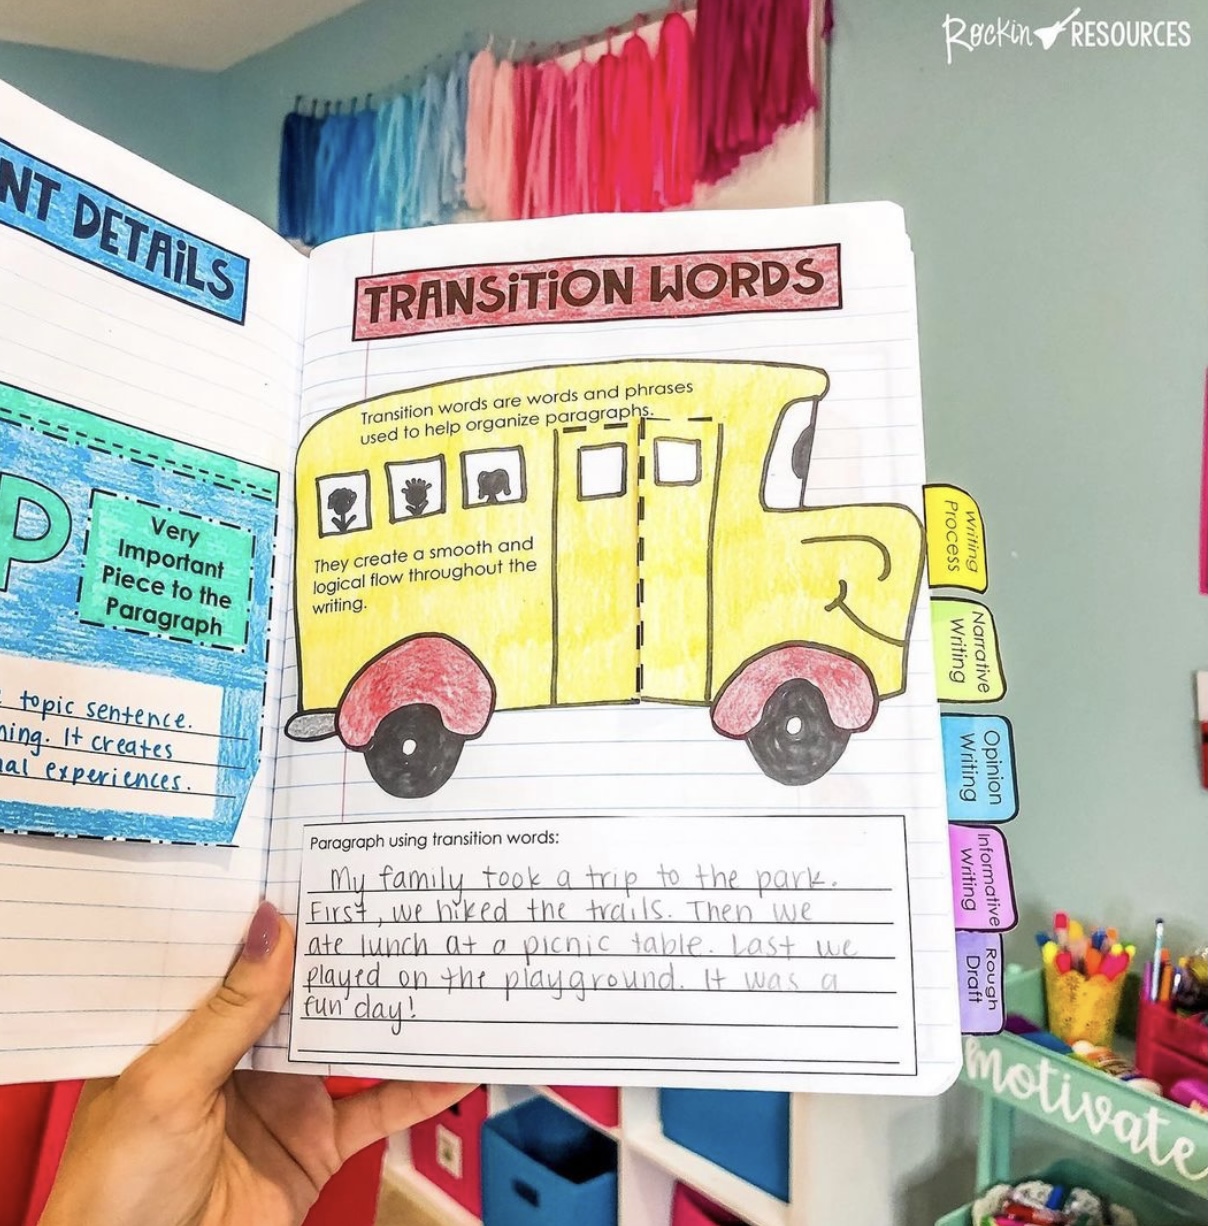 Rockin RESOURCES
NT DETAiLS
P
Very
Important
Piece to the
Paragraph
topic sentence.
It creates
experiences.
TRANSiTiON WORDS
Transition words are words and phrases
used to help organize paragraphs.
They create a smooth and
logical flow throughout the
writing.
Paragraph using transition words:
My family took a trip to the park.
First, we hiked the trails. Then we
ate lunch at a picnic table. Last we
played on the playground. It was a
fun day!
Writing
Process
Narrative
Writing
Opinion
Writing
Informative
Writing
Rough
Draft
motivate